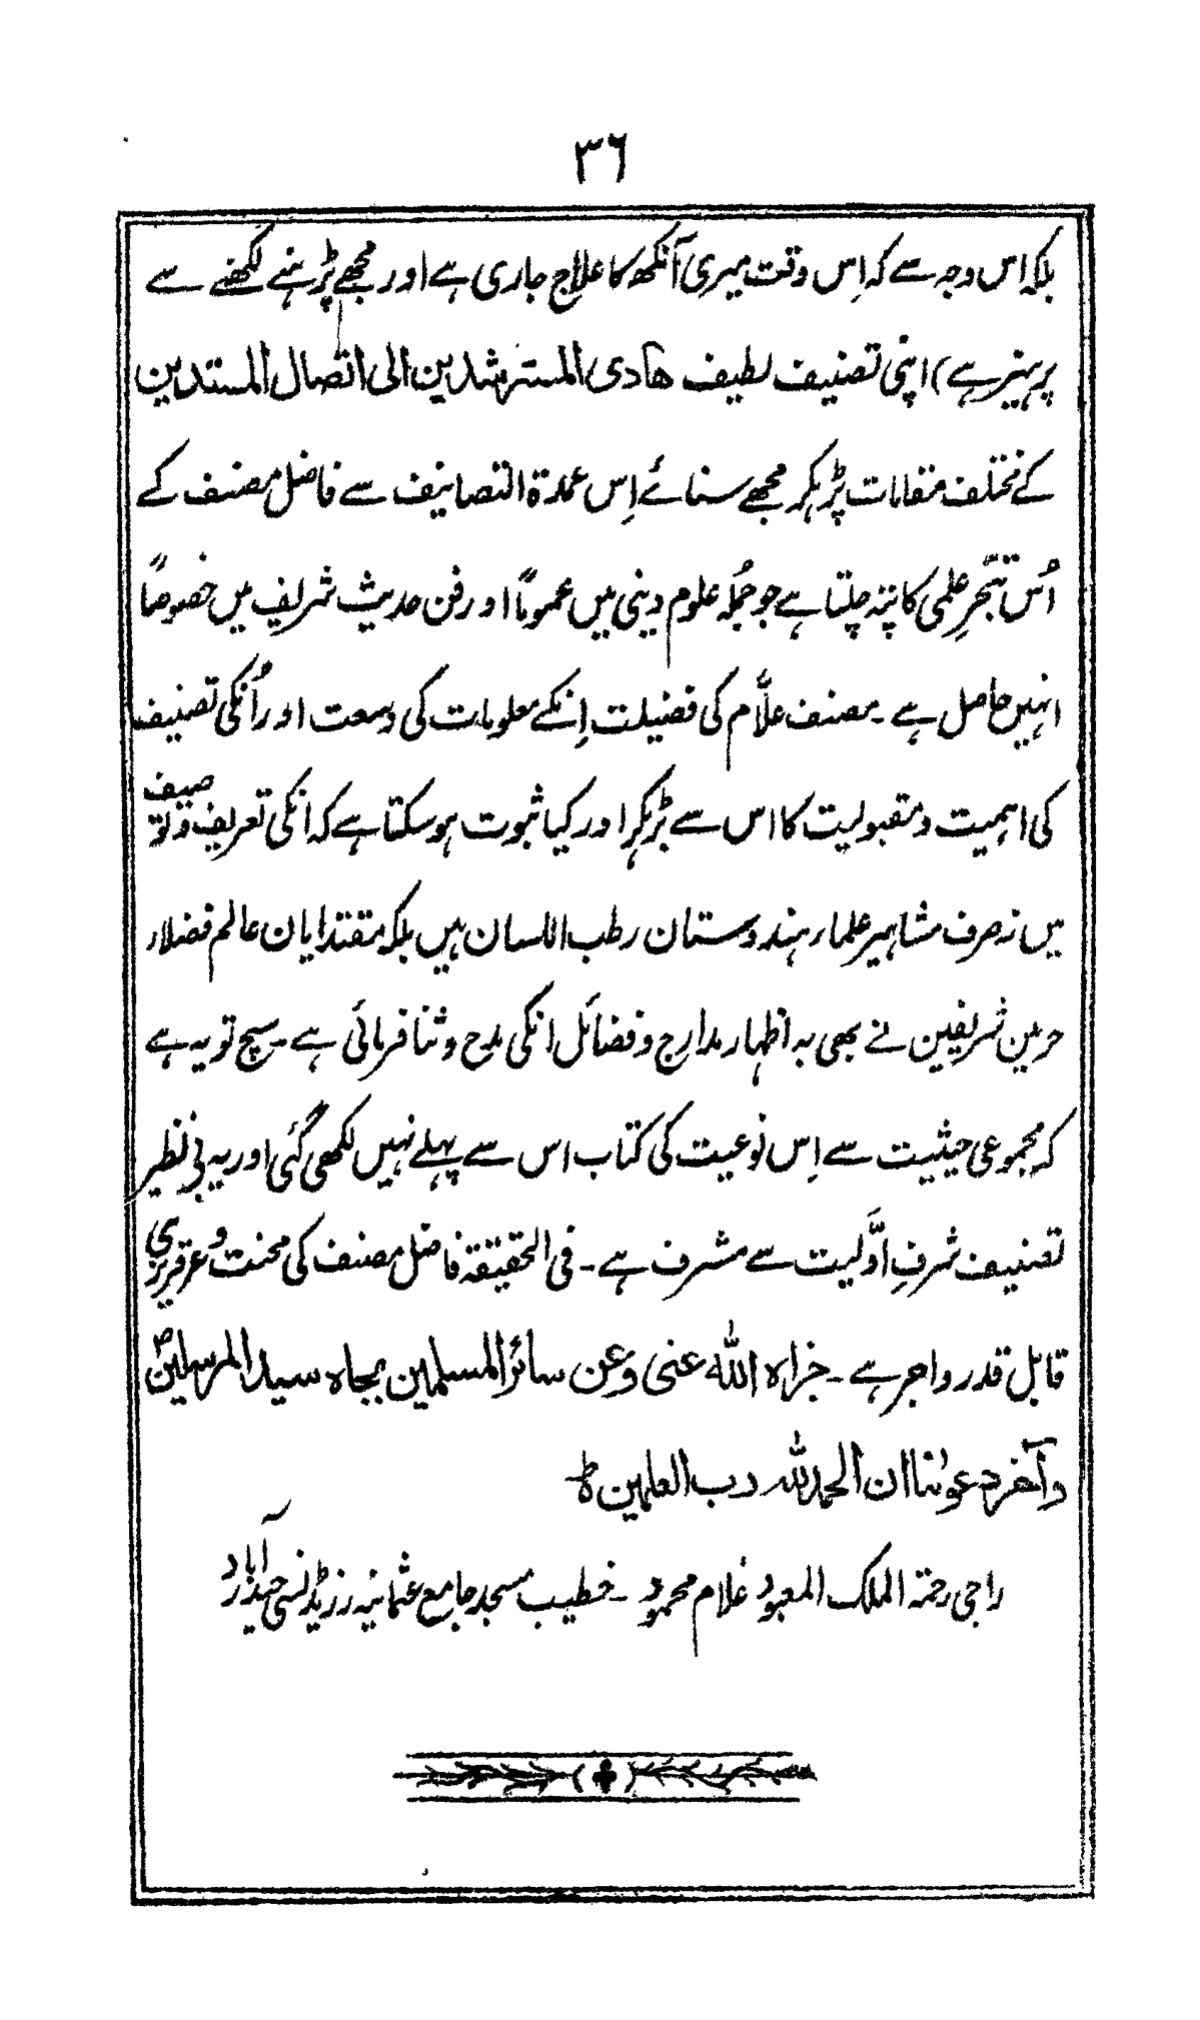 ۳۶
بلکہ اس وجہ سے کہ اِس وقت میری آنکھ کا علاج جاری ہے اور مجھے پڑہنے لکھنے سے
پرہیز ہے) اپنی تصنیف لطیف ھادی المسترشدین الی اتصال المسندین
کے مختلف مقامات پڑہکر مجھے سنائے اِس عمدة التصانیف سے فاضل مصنف کے
اُس تبحّرِ علمی کا پتہ چلتا ہے جو جُملہ علوم دینی میں عموماً اور فن حدیث شریف میں خصوصاً
انہیں حاصل ہے ۔ مصنف علّام کی فضیلت اِنکے معلومات کی وسعت اور اُنکی تصنیف
کی اہمیت و مقبولیت کا اس سے بڑہکر اور کیا ثبوت ہوسکتا ہے کہ انکی تعریف و توصیف
میں نہ صرف مشاہیر علماء ہندوستان رطب اللسان ہیں بلکہ مقتدایان عالم فضلاء
حرمین شریفین نے بھی بہ اظہار مدارج و فضائل انکی مدح و ثنا فرمائی ہے ۔ سچ تو یہ ہے
کہ مجموعی حیثیت سے اِس نوعیت کی کتاب اس سے پہلے نہیں لکھی گئی اور یہ بی نظیر
تصنیف شرفِ اوَّلیت سے مشرف ہے ۔ فی الحقیقة فاضل مصنف کی محنت و عرقریزی
قابل قدر و اجر ہے ۔ جزاہ اللّٰہ عنی وعن سائر المسلمین بجاہ سید المرسلین ؐ
وآخر دعوٰنا ان الحمد للّٰہ رب العلمین ط
راجی رحمة الملک المعبود غلام محمود ۔ خطیب مسجد جامع عثمانیہ رزیڈنسی حیدرآباد